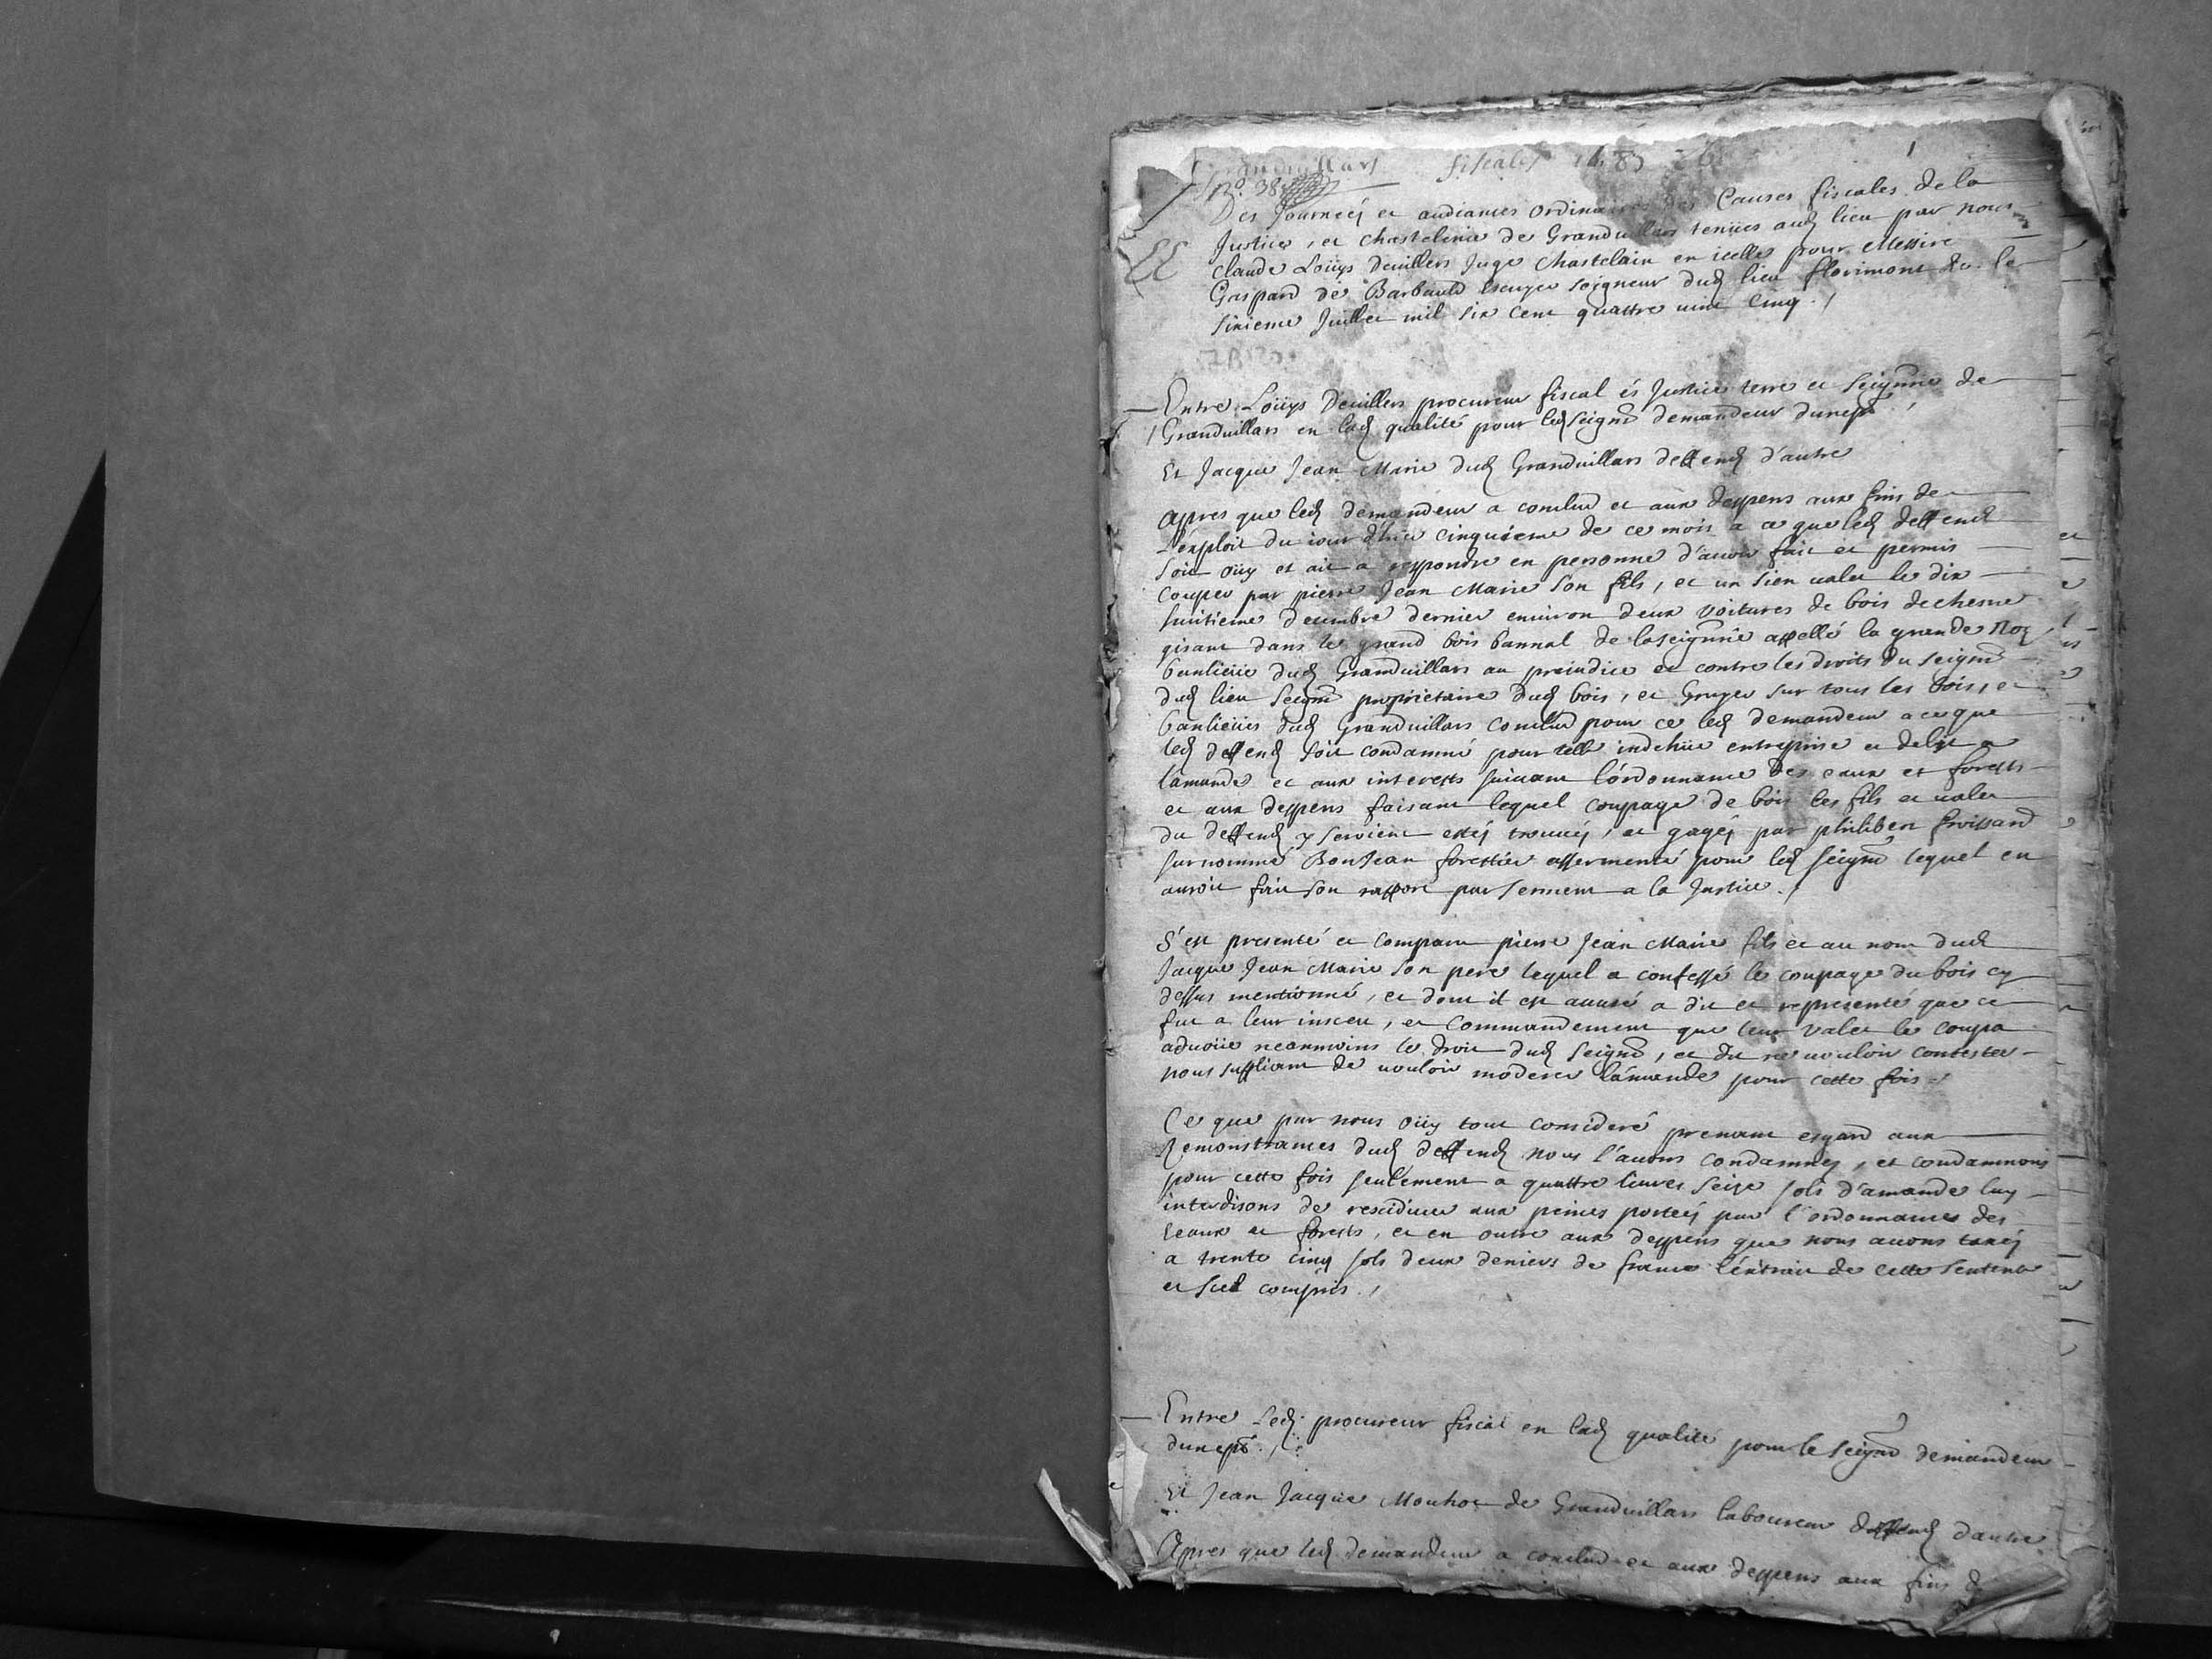 Grandvillars fiscales 1685
No. 38
Des Journeés et audiances ordinaires des Causes fiscales de la
Justice, et chastelenie de Granduillars tenües aud lieu par nous
Claude Loüys Deuillers Juge Chastelain en icelle pour Messire
Gaspard de Barbauld Escuyer seigneur dud lieu florimont &c. le
sixieme Juillet mil six cent quattre uint cinq. /
7B120
Entre Loüys Deuillers procureur fiscal és Justice terre et seignrie de
Granduillars en lad qualité pour led Seignr demandeur d'une pt /
Et Jacque Jean Marie dud Granduillars deffend d'autre
Apres que led demandeur a conclud et aux despens aux fins de
l'exploit du iour d'hier cinquieme de ce mois a ce que led deffend
soit oüy et ait a respondre en personne d'auoir fait et permis
couper par pierre Jean Marie son fils, et un sien valet le dix
huitieme decembre dernier enuiron deux voitures de bois de chesne
gisant dans le grand bois bannal de la seignrie appellé la grande Noz
banlieüe dud Granduillars au preiudice et contre les droits du seignr
dud lieu Seignr proprietaire dud bois, et Gruyer sur tous les bois, et
banlieües dud Granduillars conclud pour ce led demandeur a ce que
led deffend soit condamné pour telle indehüe entreprise et delit a
lamande et aux interests suiuant l'ordonnance des eaux et forests
et aux despens faisant lequel coupage de bois les fils et valet
du deffend y seroient estés trouués, et gagés par philibert froissard
surnommé BonJean forestier assermenté pour led seignr lequel en
auroit fait son rapport par serment a la Justice. /
S'est presenté et comparu pierre Jean Marie fils et au nom dud
Jacque Jean Marie son pere lequel a confessé le coupage du bois cy
dessus mentionné, et dont il est accusé a dit et representé que ce
fut a leur insceu, et commandement que leur valet le coupa
aduoüe neanmoins le droit dud Seignr, et dit ne vouloir contester
nous suppliant de vouloir moderer l'amande pour cette fois /
Ce que par nous oüy tout consideré prenant esgard aux
Remonstrances dud deffend nous l'auons condamnez, et condamnons
pour cette fois seulement a quattre liures seize sols d'amande luy
interdisons de rescidiuer aux peines portées par l'ordonnances des
eaux et forests, et en outre aux despens que nous auons taxés
a trente cinq sols deux deniers de france l'extrait de cette sentence
et scel compris. /
Entre Led procureur fiscal en lad qualité pour le seignr demandeur
d'une pt. /
Et Jean Jacque Mouhot de Granduillars laboureur deffend d'autre
Apres que led demandeur a conclud et aux despens aux fins d